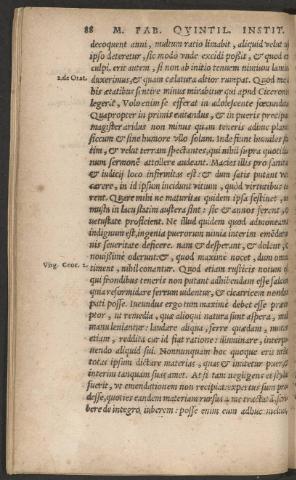 88 M. FAB. QVINTIL. INSTIT.
decoquent anni, multum ratio limabit, aliquid velut
ipso deteretur, sic modo unde excidi possit, & quod
culpi. erit autem, si non ab initio tenuem nimium
duxerimus, & quam cælatura altior rumpat. Quod
2. de Orat. bis ætatibus sentire minus mirabitur qui apud Ciceronem
legerit, Volo enim se efferat in adolescente fœcunditas
Quapropter in primis euitandus, & in pueris præcipuè
magister aridus non minus quam teneris adhuc plantis
siccum & sine humore vllo solum. Inde fiunt humiles
tim, & velut terram spectantes, qui nihil supra quotidianum
sermonē attollere audeant. Macies illis pro sanitate
& iudicij loco infirmitas est: & dum satis putant
carere, in id ipsum incidunt vitium, quòd virtutibus
rent. Quare mihi ne maturitas quidem ipsa festinet,
musta in lacu statim austera sint: sic & annos ferent,
vetustate proficient. Ne illud quidem quod admoneamus
indignum est, ingenia puerorum nimia interim emēdationis
seueritate deficere. nam & desperant, & dolent,
nouissimè oderunt: &, quod maximè nocet, dum omnia
Virg. Geor. 2. timent, nihil conantur. Quod etiam rusticis notum
qui frondibus teneris non putant adhibendam esse falcem
quia reformidare ferrum uidentur, & cicatricem nondum
pati posse. Iucundus ergo tum maximè debet esse præceptor,
ut remedia, quæ alioqui natura sunt aspera,
manu leniantur: laudare aliqua, ferre quædam, mutare
etiam, reddita cur id fiat ratione: illuminare, interponendo
aliquid sui. Nonnunquam hoc quoque erit
totas ipsum dictare materias, quas & imitetur puer,
interim tanquam suas amet. At si tam negligens ei stylus
fuerit, vt emendationem non recipiat: expertus sum prodesse,
quoties eandem materiam rursus à me tractatā,
bere de integro, iuberem: posse enim eum adhuc melius,